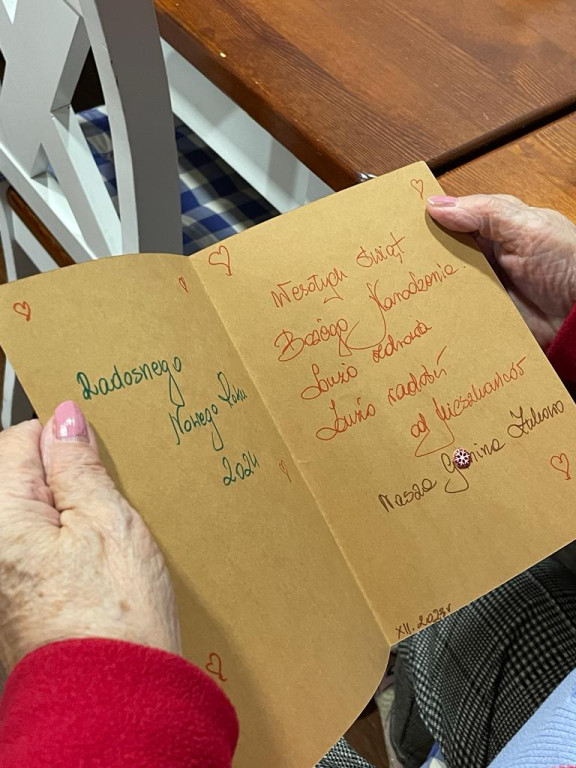 Radosnego
Nowego Roku
2024
Wesołych Świąt
Bożego Narodzenia.
Dużo zdrowia
Dużo radości
od Mieszkańców
Nasza Gmina Żukowo
XII. 2023r